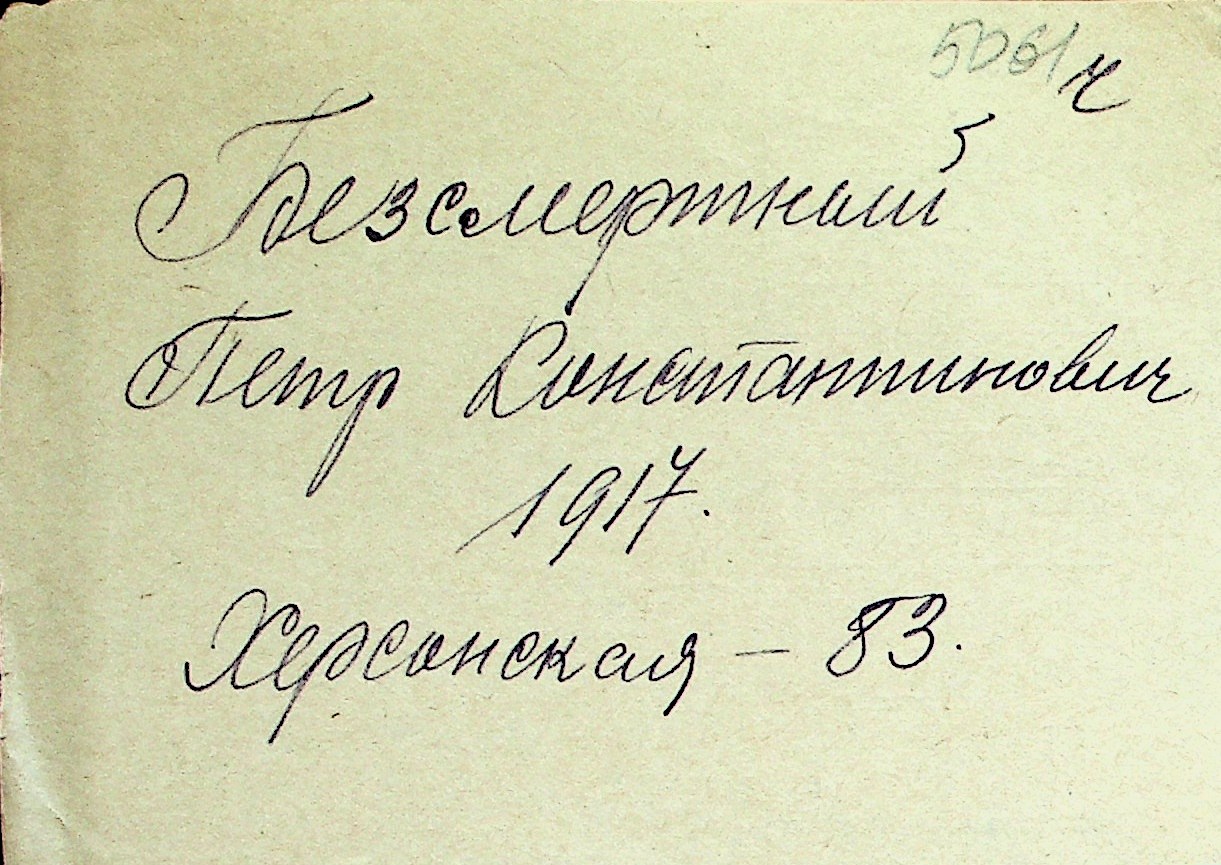 5061 ч
Безсмертный
Петр Константинович
1917.
Херсонская – 83.